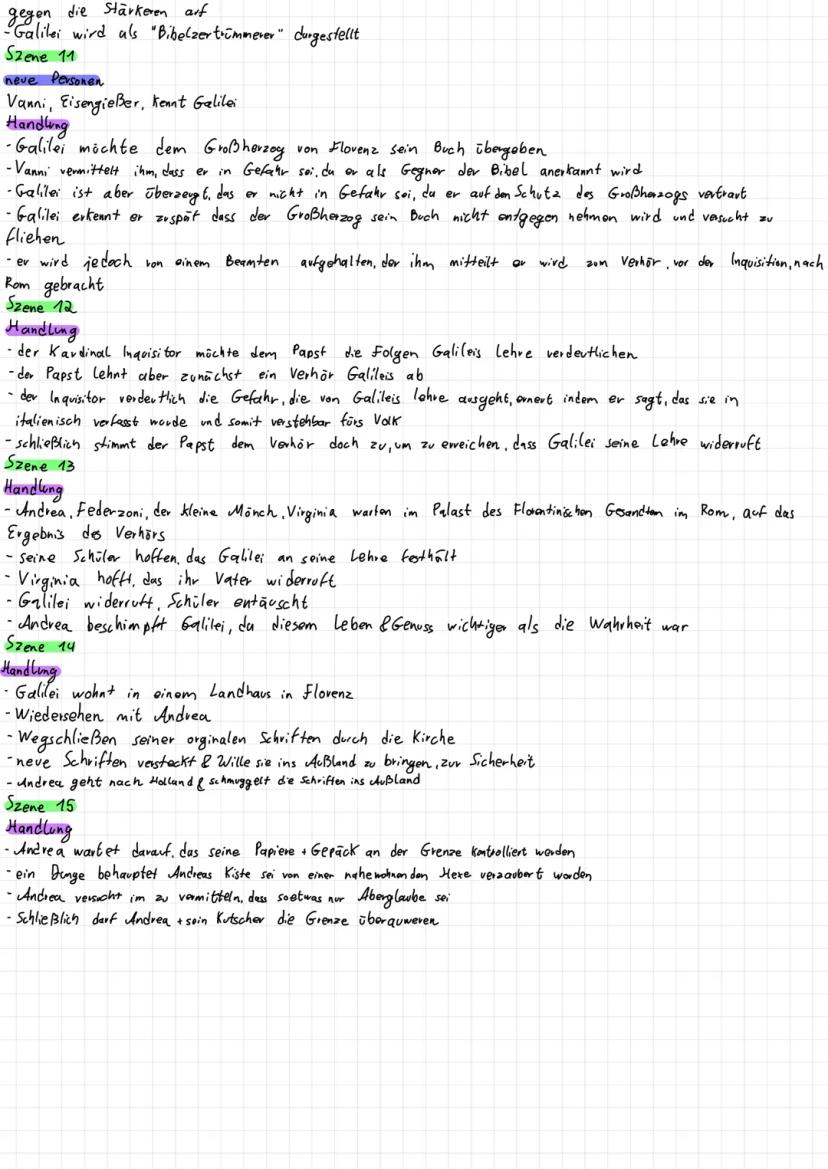 gegen die Stärkeren auf
- Galilei wird als "Bibelzertrümmerer" dargestellt
Szene 11
neue Personen
Vanni, Eisengießer, kennt Galilei
Handlung
- Galilei möchte dem Großherzog von Florenz sein Buch übergeben
- Vanni vermittelt ihm, dass er in Gefahr sei, da er als Gegner der Bibel anerkannt wird
- Galilei ist aber überzeugt, das er nicht in Gefahr sei, da er auf den Schutz des Großherzogs vertraut
- Galilei erkennt er zuspät dass der Großherzog sein Buch nicht entgegen nehmen wird und versucht zu
fliehen
- er wird jedoch von einem Beamten aufgehalten, der ihm mitteilt er wird zum Verhör, vor der Inquisition, nach
Rom gebracht
Szene 12
Handlung
- der Kardinal Inquisitor möchte dem Papst die Folgen Galileis Lehre verdeutlichen
- der Papst lehnt aber zunächst ein Verhör Galileis ab
- der Inquisitor verdeutlich die Gefahr, die von Galileis lehre ausgeht, erneut indem er sagt, das sie in
italienisch verfasst wurde und somit verstehbar fürs Volk
- schließlich stimmt der Papst dem Verhör doch zu, um zu erreichen, dass Galilei seine Lehre widerruft
Szene 13
Handlung
- Andrea, Federzoni, der kleine Mönch, Virginia warten im Palast des Florentinischen Gesandten im Rom, auf das
Ergebnis des Verhörs
- seine Schüler hoffen, das Galilei an seine Lehre festhält
- Virginia hofft, das ihr Vater widerruft
- Galilei widerruft, Schüler entäuscht
- Andrea beschimpft Galilei, da diesem Leben & Genuss wichtiger als die Wahrheit war
Szene 14
Handlung
- Galilei wohnt in einem Landhaus in Florenz
- Wiedersehen mit Andrea
- Wegschließen seiner orginalen Schriften durch die Kirche
- neue Schriften versteckt & Wille sie ins Außland zu bringen, zur Sicherheit
- Andrea geht nach Holland & schmuggelt die Schriften ins Außland
Szene 15
Handlung
- Andrea wartet darauf, das seine Papiere + Gepäck an der Grenze kontrolliert werden
- ein Junge behauptet Andreas Kiste sei von einer nahewohnenden Hexe verzaubert worden
- Andrea versucht im zu vermitteln, dass soetwas nur Aberglaube sei
- Schließlich darf Andrea + sein Kutscher die Grenze überqueren